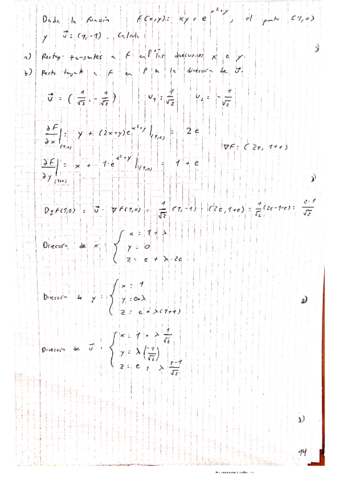 Dada la función F(x,y): xy + e^{x²+y}, el punto (1,0)
y v⃗: (1,-1). Calcula:
a) Rectas tangentes a F en P las direcciones x e y.
b) Recta tangente a F en P en la dirección de v⃗.
v⃗ = (1/√2, -1/√2) v₁ = 1/√2 v₂ = -1/√2
∂F/∂x|(1,0) = y + (2x+y)e^{x²+y}|(1,0) = 2e
∇F: (2e, 1+e)
∂F/∂y|(1,0) = x + 1·e^{x²+y}|(1,0) = 1 + e
D f(1,0) = v⃗ · ∇F(1,0) = 1/√2 (1,-1) · (2e, 1+e) = 1/√2 (2e-1-e) = e-1/√2
Dirección de x: { x = 1 + λ
y = 0
z = e + λ·2e
Dirección de y: { x = 1
y = 0+λ
z = e + λ(1+e)
Dirección de v⃗: { x = 1 + λ 1/√2
y = λ(-1/√2)
z = e + λ
14